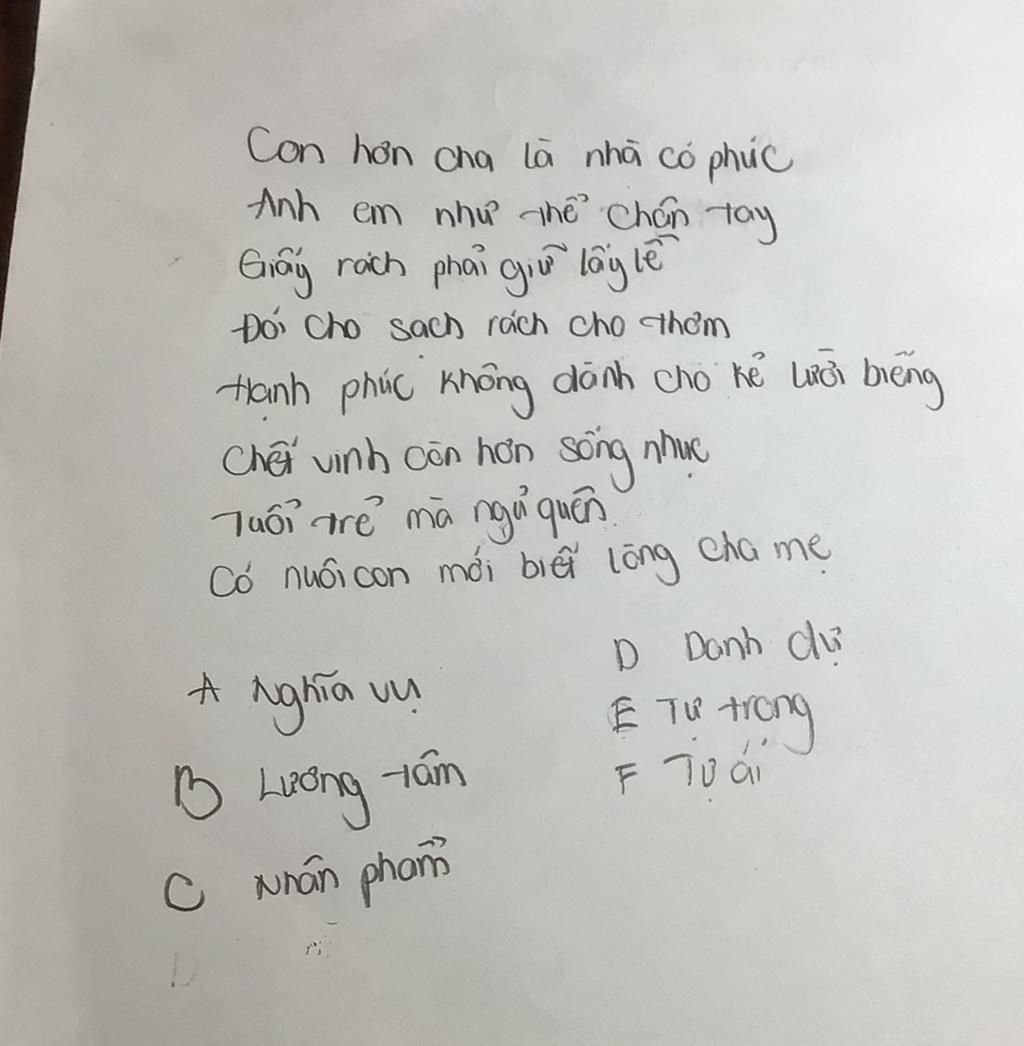 Con hơn cha là nhà có phúc
Anh em như thể chân tay
Giấy rách phải giữ lấy lề
Đói cho sạch rách cho thơm
Hạnh phúc không dành cho kẻ lười biếng
Chết vinh còn hơn sống nhục
Tuổi trẻ mà ngủ quên
Có nuôi con mới biết lòng cha mẹ
A Nghĩa vụ
B Lương tâm
C Nhân phẩm
D
D Danh dự
E Tự trọng
F Tự ái